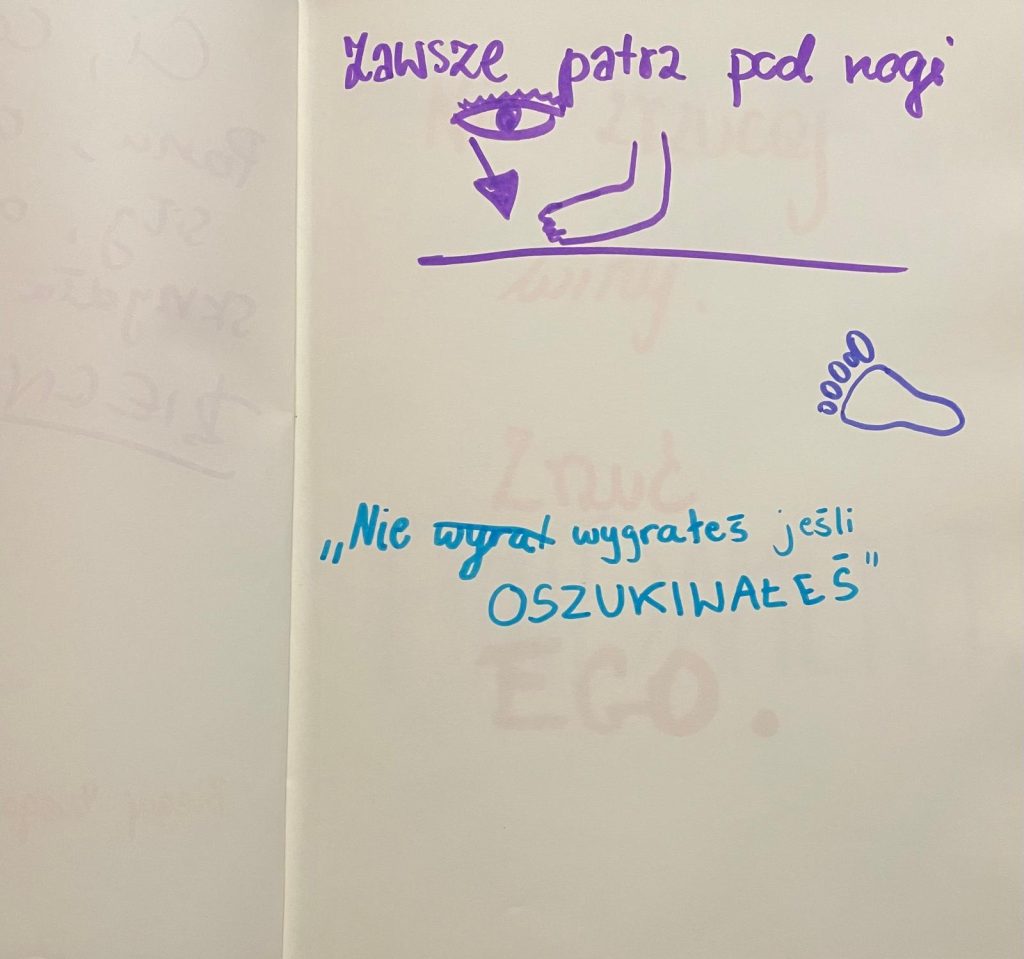 Zawsze patrz pod nogi
„Nie wygrał wygrałeś jeśli
OSZUKIWAŁEŚ"
Zrzuć
EGO.